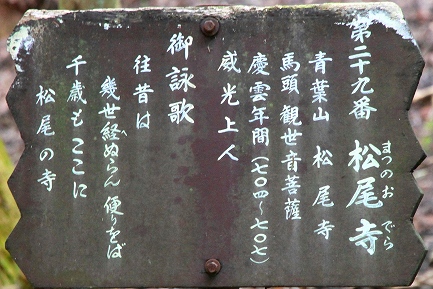 第二十九番 松尾寺
まつのおでら
青葉山 松尾寺
馬頭観世音菩薩
慶雲年間(七〇四～七〇七)
威光上人
御詠歌
往昔は
幾世経ぬらん 便りをば
へ
千歳もここに
松尾の寺